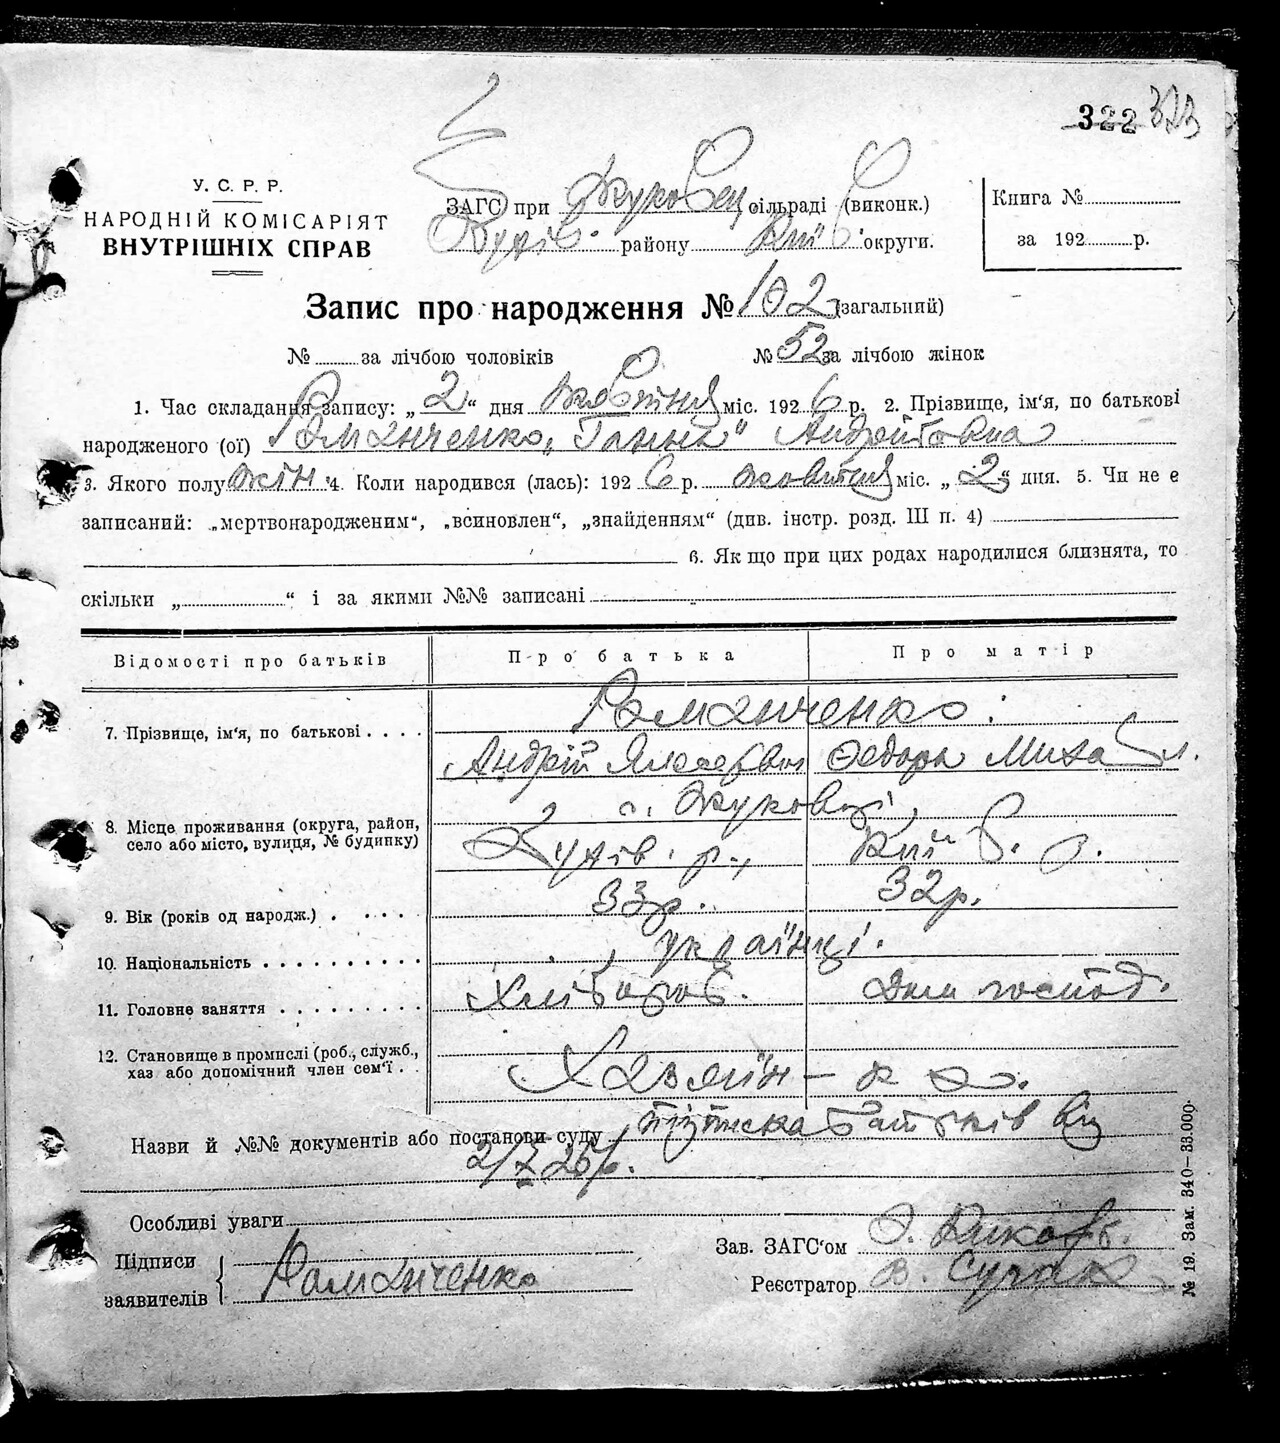 322 323
У. С. Р. Р.
НАРОДНІЙ КОМІСАРІЯТ
ВНУТРІШНІХ СПРАВ
ЗАГС при Жуковец сільраді (виконк.)
району Київ округи.
Книга №
за 192 р.
Запис про народження № 102 (загальний)
№ за лічбою чоловіків № 52 за лічбою жінок
1. Час складання запису: „ 2 “ дня жовтня міс. 1926 р. 2. Прізвище, ім'я, по батькові
народженого (ої) Романченко „Ганна“ Андреївна
3. Якого полу жін. 4. Коли народився (лась): 1926 р. жовтня міс. „ 2 “ дня. 5. Чи не є
записаний: „мертвонародженим“, „всиновлен“, „знайденням“ (див. інстр. розд. III п. 4)
6. Як що при цих родах народилися близнята, то
скільки „ “ і за якими №№ записані
Відомості про батьків Про батька Про матір
7. Прізвище, ім'я, по батькові . . . . Романченко:
Андрій Федора Михайл.
8. Місце проживання (округа, район,
село або місто, вулиця, № будинку)
с. Жуковці,
р., Київ. о.
9. Вік (років од народж.) . . . . . 33р. 32р.
10. Національність . . . . . . . . . . українці.
11. Головне заняття . . . . . . . . . Хлібороб. Дом. господ.
12. Становище в промислі (роб., служб.,
хаз або допомічний член сем'ї . .
Хазяїн –
Назви й №№ документів або постанови суду підписка батьків від
2/X 26р.
Особливі уваги
Підписи
заявителів
Романченко
Зав. ЗАГС'ом
Реєстратор В.
№ 19. Зам. 340—33.000.